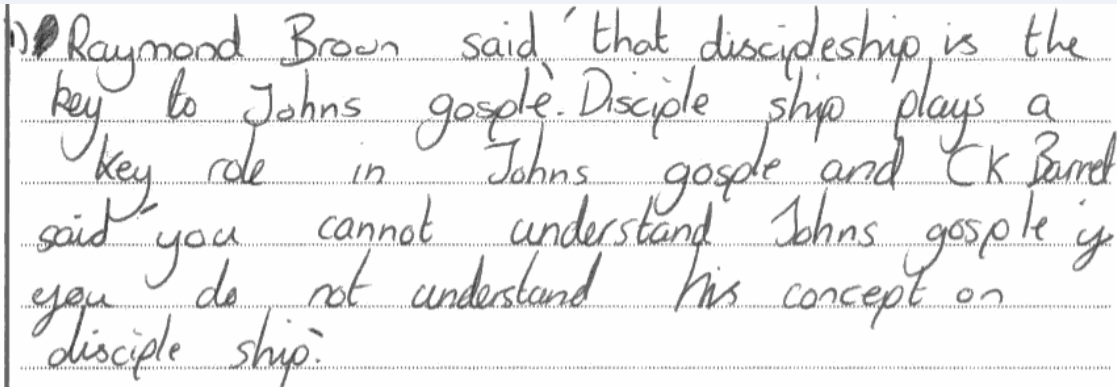 1) Raymond Brown said 'that discipleship is the
key to Johns gosple'. Disciple ship plays a
key role in Johns gosple and CK Barret
said "you cannot understand Johns gosple if
you do not understand his concept on
disciple ship."